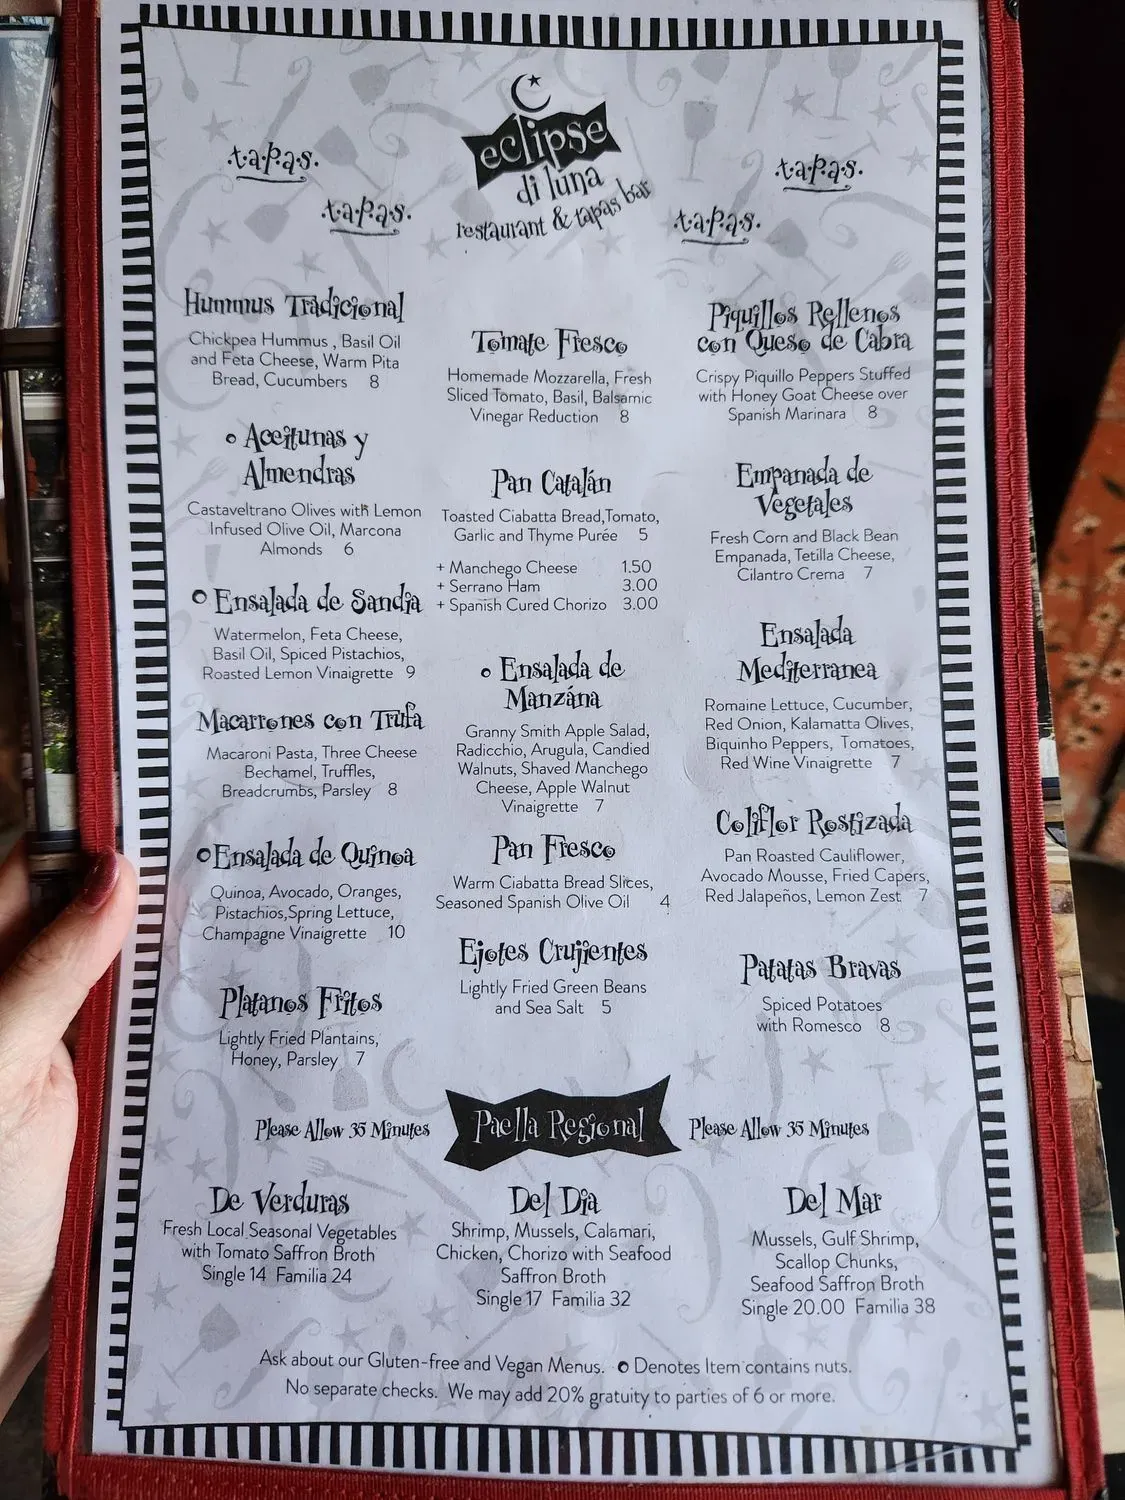 eclipse
di luna
restaurant & tapas bar
t.a.p.a.s.
t.a.p.a.s.
t.a.p.a.s.
t.a.p.a.s.
Hummus Tradicional
Chickpea Hummus , Basil Oil
and Feta Cheese, Warm Pita
Bread, Cucumbers 8
Aceitunas y
Almendras
Castaveltrano Olives with Lemon
Infused Olive Oil, Marcona
Almonds 6
Ensalada de Sandia
Watermelon, Feta Cheese,
Basil Oil, Spiced Pistachios,
Roasted Lemon Vinaigrette 9
Macarrones con Trufa
Macaroni Pasta, Three Cheese
Bechamel, Truffles,
Breadcrumbs, Parsley 8
Ensalada de Quinoa
Quinoa, Avocado, Oranges,
Pistachios,Spring Lettuce,
Champagne Vinaigrette 10
Platanos Fritos
Lightly Fried Plantains,
Honey, Parsley 7
Tomate Fresco
Homemade Mozzarella, Fresh
Sliced Tomato, Basil, Balsamic
Vinegar Reduction 8
Pan Catalán
Toasted Ciabatta Bread,Tomato,
Garlic and Thyme Purée 5
+ Manchego Cheese 1.50
+ Serrano Ham 3.00
+ Spanish Cured Chorizo 3.00
Ensalada de
Manzána
Granny Smith Apple Salad,
Radicchio, Arugula, Candied
Walnuts, Shaved Manchego
Cheese, Apple Walnut
Vinaigrette 7
Pan Fresco
Warm Ciabatta Bread Slices,
Seasoned Spanish Olive Oil 4
Ejotes Crujientes
Lightly Fried Green Beans
and Sea Salt 5
Piquillos Rellenos
con Queso de Cabra
Crispy Piquillo Peppers Stuffed
with Honey Goat Cheese over
Spanish Marinara 8
Empanada de
Vegetales
Fresh Corn and Black Bean
Empanada, Tetilla Cheese,
Cilantro Crema 7
Ensalada
Mediterranea
Romaine Lettuce, Cucumber,
Red Onion, Kalamatta Olives,
Biquinho Peppers, Tomatoes,
Red Wine Vinaigrette 7
Coliflor Rostizada
Pan Roasted Cauliflower,
Avocado Mousse, Fried Capers,
Red Jalapeños, Lemon Zest 7
Patatas Bravas
Spiced Potatoes
with Romesco 8
Please Allow 35 Minutes
Paella Regional
Please Allow 35 Minutes
De Verduras
Fresh Local Seasonal Vegetables
with Tomato Saffron Broth
Single 14 Familia 24
Del Dia
Shrimp, Mussels, Calamari,
Chicken, Chorizo with Seafood
Saffron Broth
Single 17 Familia 32
Del Mar
Mussels, Gulf Shrimp,
Scallop Chunks,
Seafood Saffron Broth
Single 20.00 Familia 38
Ask about our Gluten-free and Vegan Menus. Denotes Item contains nuts.
No separate checks. We may add 20% gratuity to parties of 6 or more.